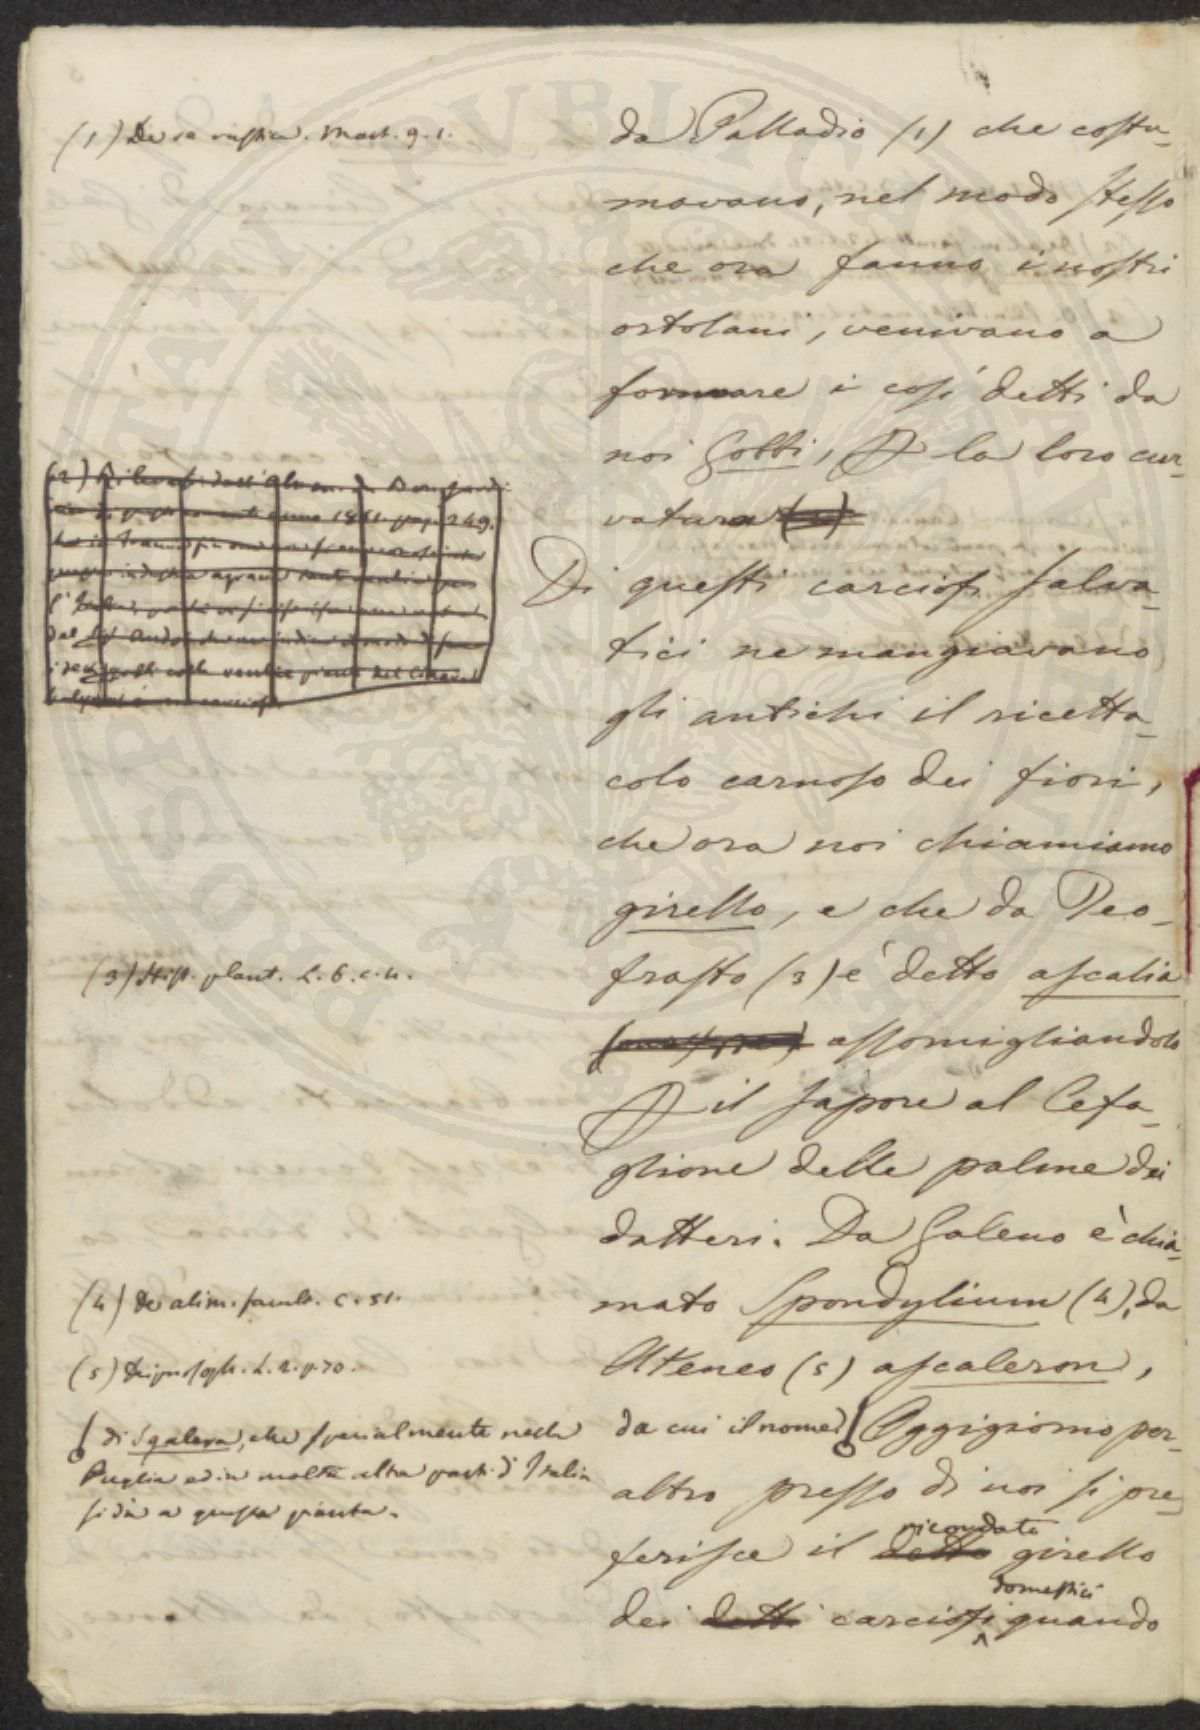 (1) De re rustica. Mart. 9. 1.
da Palladio (1) che costu-
mavano, nel modo stesso
che ora fanno i nostri
ortolani, venivano a
formare i così detti da
noi Gobbi, P la loro cur-
vatura (2)
Di questi carciofi salva-
tici ne mangiavano
gli antichi il ricetta-
colo carnoso dei fiori,
che ora noi chiamiamo
girello, e che da Teo-
frasto (3) è detto ascalia
assomigliandolo
P il sapore al Cefa-
glione delle palme dei
datteri. Da Galeno è chia-
mato Spondylium (4), da
Ateneo (5) ascaleron,
da cui il nome Oggigiorno per-
altro presso di noi si pre-
ferisce il detto ricordato girello
dei detti carciofi domestici quando
(2)
anno 1861. pag. 249.
(3) Hist. plant. L. 6. c. 4.
(4) De alim. facult. c. 51.
(5) Deipnosoph. L. 2. p. 70.
di Sgalera, che specialmente nella
Puglia ed in molte altre parti d'Italia
si dà a questa pianta.
PROSPERITATI PUBLICAE